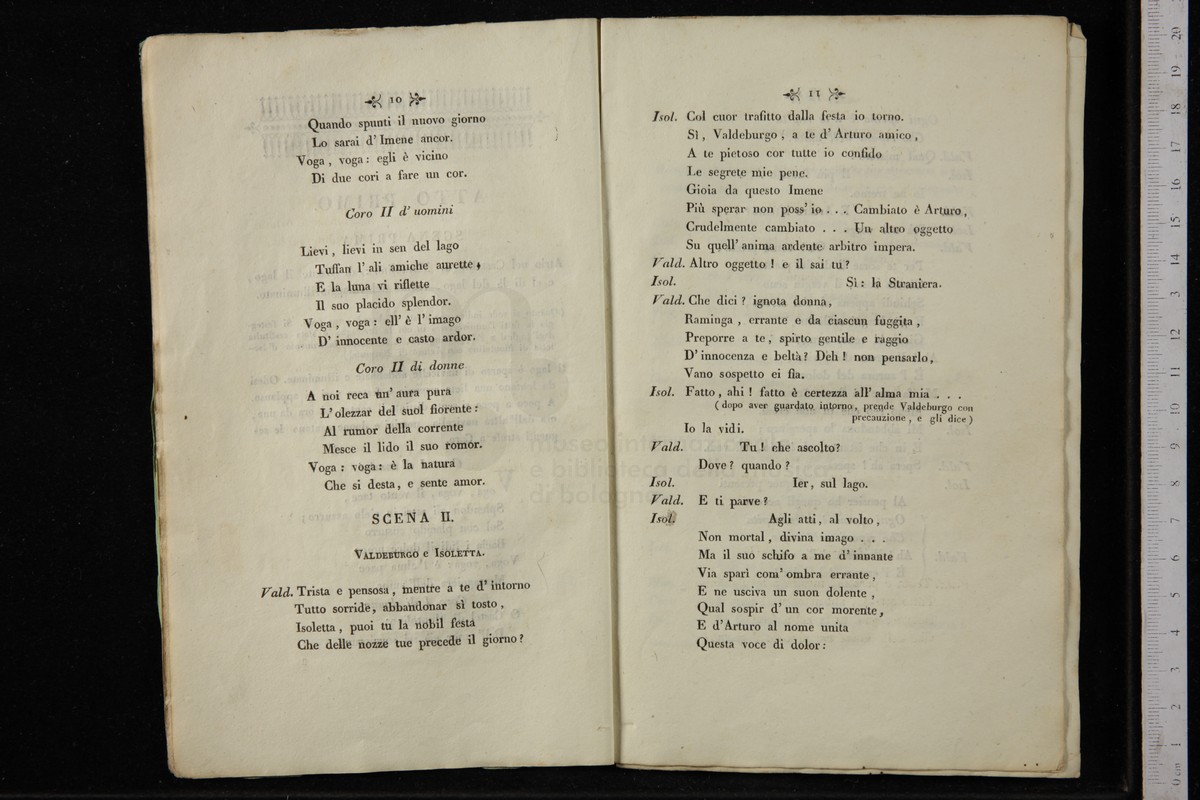 10
Quando spunti il nuovo giorno
Lo sarai d' Imene ancor.
Voga, voga: egli è vicino
Di due cori a fare un cor.
Coro II d' uomini
Lievi, lievi in sen del lago
Tuffan l' ali amiche aurette,
E la luna vi riflette
Il suo placido splendor.
Voga, voga: ell' è l' imago
D' innocente e casto ardor.
Coro II di donne
A noi reca un' aura pura
L' olezzar del suol fiorente:
Al rumor della corrente
Mesce il lido il suo romor.
Voga: voga: è la natura
Che si desta, e sente amor.
SCENA II.
VALDEBURGO e ISOLETTA.
Vald. Trista e pensosa, mentre a te d' intorno
Tutto sorride, abbandonar sì tosto,
Isoletta, puoi tu la nobil festa
Che delle nozze tue precede il giorno?
11
Isol. Col cuor trafitto dalla festa io torno.
Sì, Valdeburgo, a te d' Arturo amico,
A te pietoso cor tutte io confido
Le segrete mie pene.
Gioia da questo Imene
Più sperar non poss' io... Cambiato è Arturo,
Crudelmente cambiato... Un altro oggetto
Su quell' anima ardente arbitro impera.
Vald. Altro oggetto! e il sai tu?
Isol. Sì: la Straniera.
Vald. Che dici? ignota donna,
Raminga, errante e da ciascun fuggita,
Preporre a te, spirto gentile e raggio
D' innocenza e beltà? Deh! non pensarlo,
Vano sospetto ei fia.
Isol. Fatto, ahi! fatto è certezza all' alma mia...
(dopo aver guardato intorno, prende Valdeburgo con
precauzione, e gli dice)
Io la vidi.
Vald. Tu! che ascolto?
Dove? quando?
Isol. Ier, sul lago.
Vald. E ti parve?
Isol. Agli atti, al volto,
Non mortal, divina imago...
Ma il suo schifo a me d' innante
Via sparì com' ombra errante,
E ne usciva un suon dolente,
Qual sospir d' un cor morente,
E d'Arturo al nome unita
Questa voce di dolor:
museo internazionale
e biblioteca della musica
di bologna
0 cm 1 2 3 4 5 6 7 8 9 10 11 12 13 14 15 16 17 18 19 20